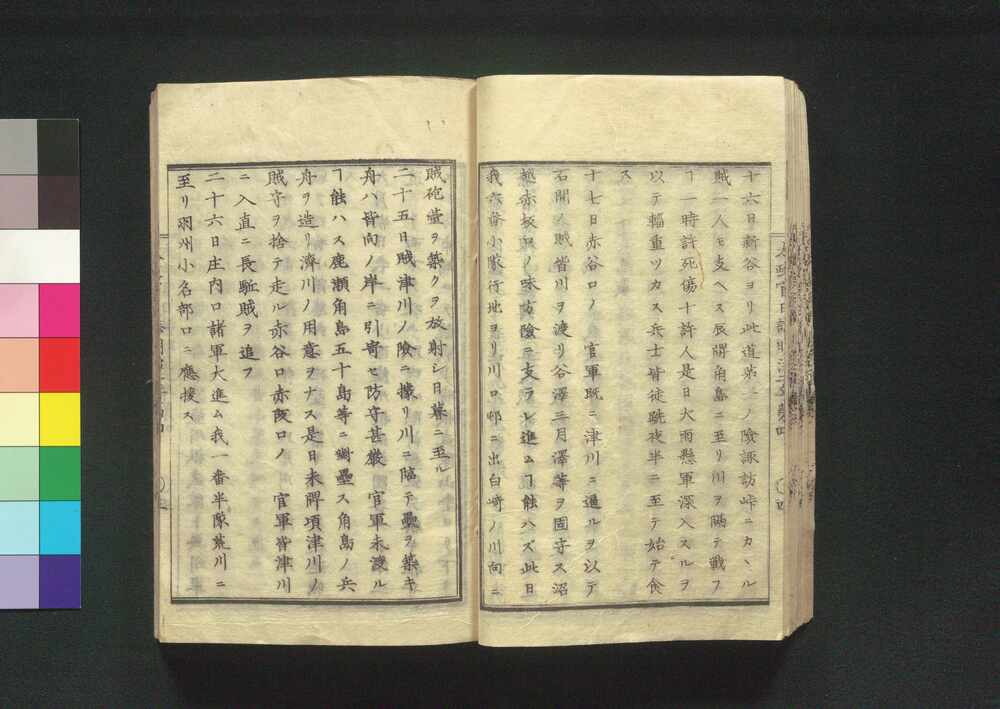 十六日新谷ヨリ此道第一ノ險諏訪峠ニカヽル
賊一人モ支ヘス辰牌角島ニ至リ川ヲ隔テ戰フ
ヿ一時許死傷十許人是日大雨懸軍深入スルヲ
以テ輜重ツカス兵士皆徒跣夜半ニ至テ始テ食
ス
十七日赤谷口ノ　官軍既ニ津川ニ逼ルヲ以テ
石間ノ賊皆川ヲ渡リ谷澤三月澤等ヲ固守ス沼
越赤坂口ノ味方險ニ支ラレ進ムヿ能ハズ此日
我六番小隊行地ヲリ川口邨ニ出白崎ノ川向ニ
太政官日誌明治二年
賊砲壹ヲ築クヲ放射シ日暮ニ至ル
二十五日賊津川ノ險ニ據リ川ニ臨テ壘ヲ築キ
舟ハ皆向ノ岸ニ引寄セ防守甚嚴　官軍未渡ル
ヿ能ハス鹿瀬角島五十島等ニ對壘ス角島ノ兵
舟ヲ造リ濟川ノ用意ヲナス是日未牌項津川ノ
賊守ヲ捨テ走ル赤谷口赤阪口ノ　官軍皆津川
ニ入直ニ長驅賊ヲ追フ
二十六日庄内口諸軍大進ム我一番半隊荒川ニ
至リ羽州小名部口ニ應援ス